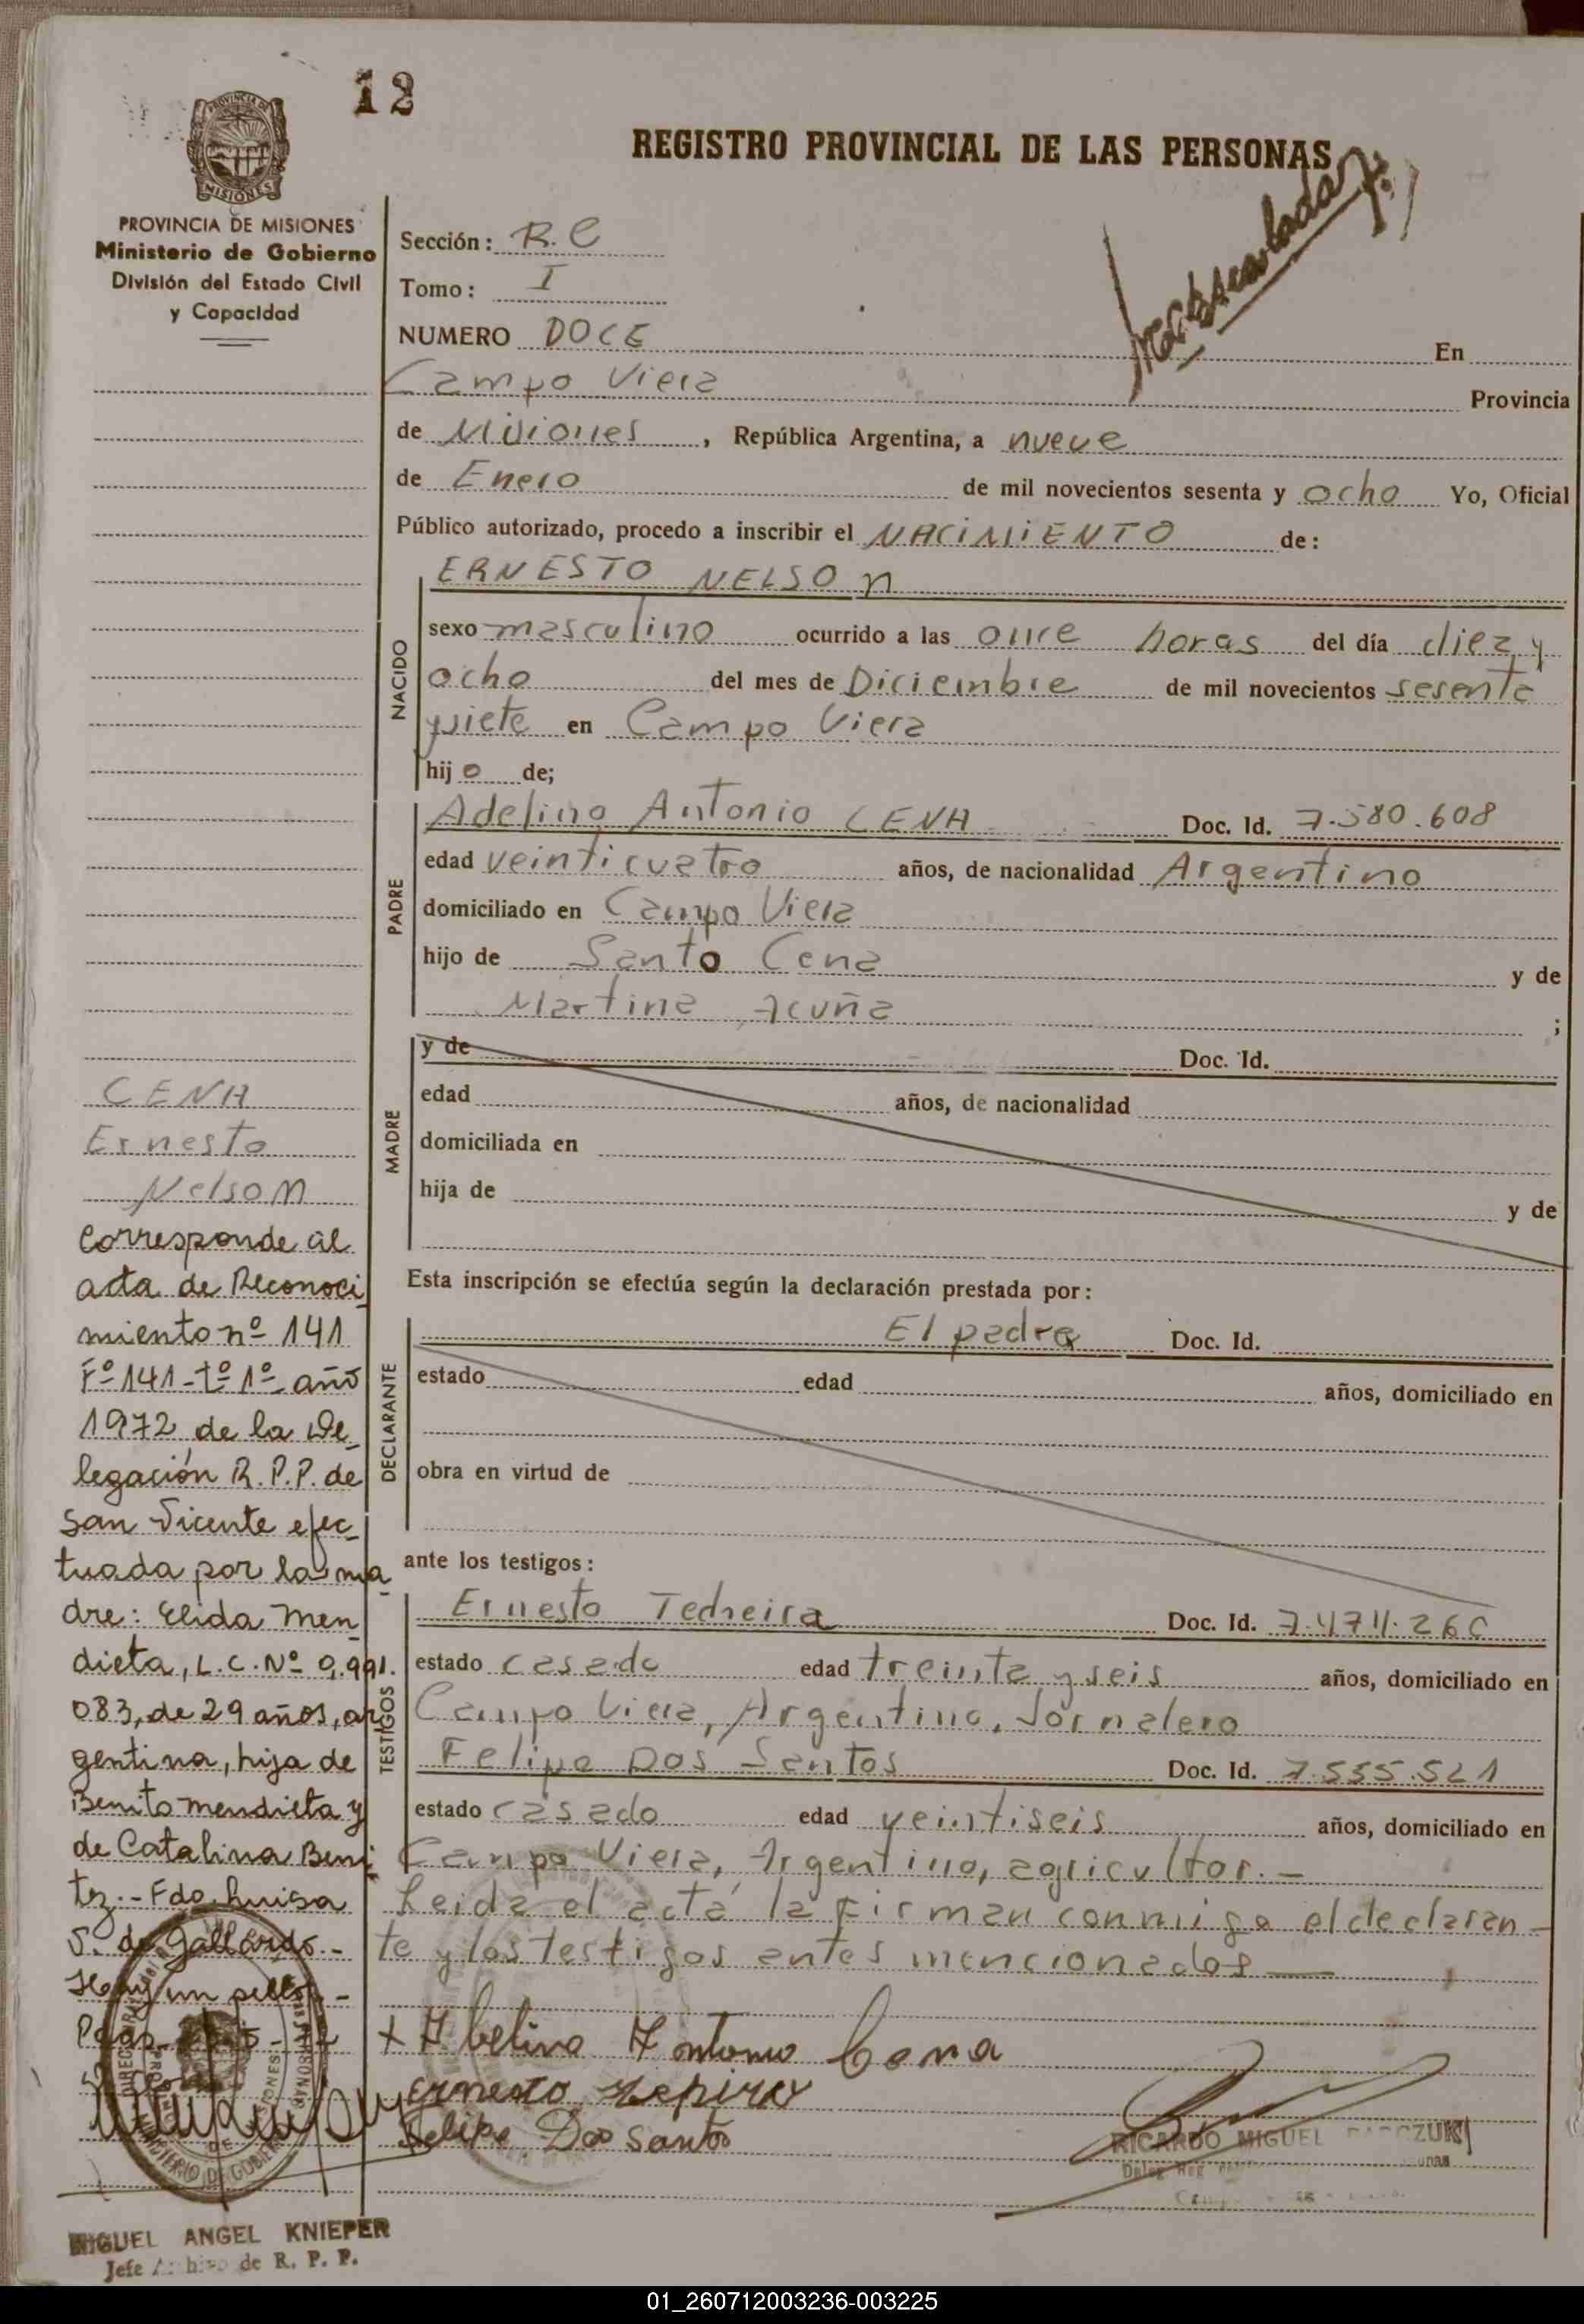 12
REGISTRO PROVINCIAL DE LAS PERSONAS
PROVINCIA DE MISIONES
PROVINCIA DE MISIONES
Ministerio de Gobierno
División del Estado Civil
y Capacidad
Sección: R.C
Tomo: I
NUMERO DOCE En
Campo Viera Provincia
de Misiones, República Argentina, a nueve
de Enero de mil novecientos sesenta y ocho Yo, Oficial
Público autorizado, procedo a inscribir el NACIMIENTO de:
NACIDO
ERNESTO NELSON
sexo masculino ocurrido a las once horas del día diez y
ocho del mes de Diciembre de mil novecientos sesenta
y siete en Campo Viera
hijo de;
PADRE
Adelino Antonio CENA Doc. Id. 7.580.608
edad veinticuatro años, de nacionalidad Argentino
domiciliado en Campo Viera
hijo de Santo Cena y de
Martina Acuña ;
MADRE
y de Doc. Id.
edad años, de nacionalidad
domiciliada en
hija de y de
Esta inscripción se efectúa según la declaración prestada por:
DECLARANTE
El padre Doc. Id.
estado edad años, domiciliado en
obra en virtud de
ante los testigos:
TESTIGOS
Ernesto Tedreira Doc. Id.
estado casado edad treinta y seis años, domiciliado en
Campo Viera, Argentino, Jornalero
Felipe Dos Santos Doc. Id. 7.535.521
estado casado edad veintiseis años, domiciliado en
Campo Viera, Argentino, agricultor.-
Leida el acta la Firman conmigo el declaran-
te y los testigos antes mencionados
Abelino Antonio Cena
Ernesto
Felipe Dos Santos
RICARDO MIGUEL
CENA
Ernesto
Nelson
Corresponde al
acta de Reconoci
miento nº 141
Fº 141-tº 1º- año
1972 de la De
legación R.P.P. de
San Vicente efec
tuada por la ma
dre: Elida Men
dieta, L.C. Nº 9.991.
083, de 29 años, ar
gentina, hija de
Benito Mendieta y
de Catalina Bení
tez.- Fdo. Luisa
S. de Gallardo.-
Hay un sello.-
MIGUEL ANGEL KNIEPER
Jefe Archivo de R. P. P.
01_260712003236-003225